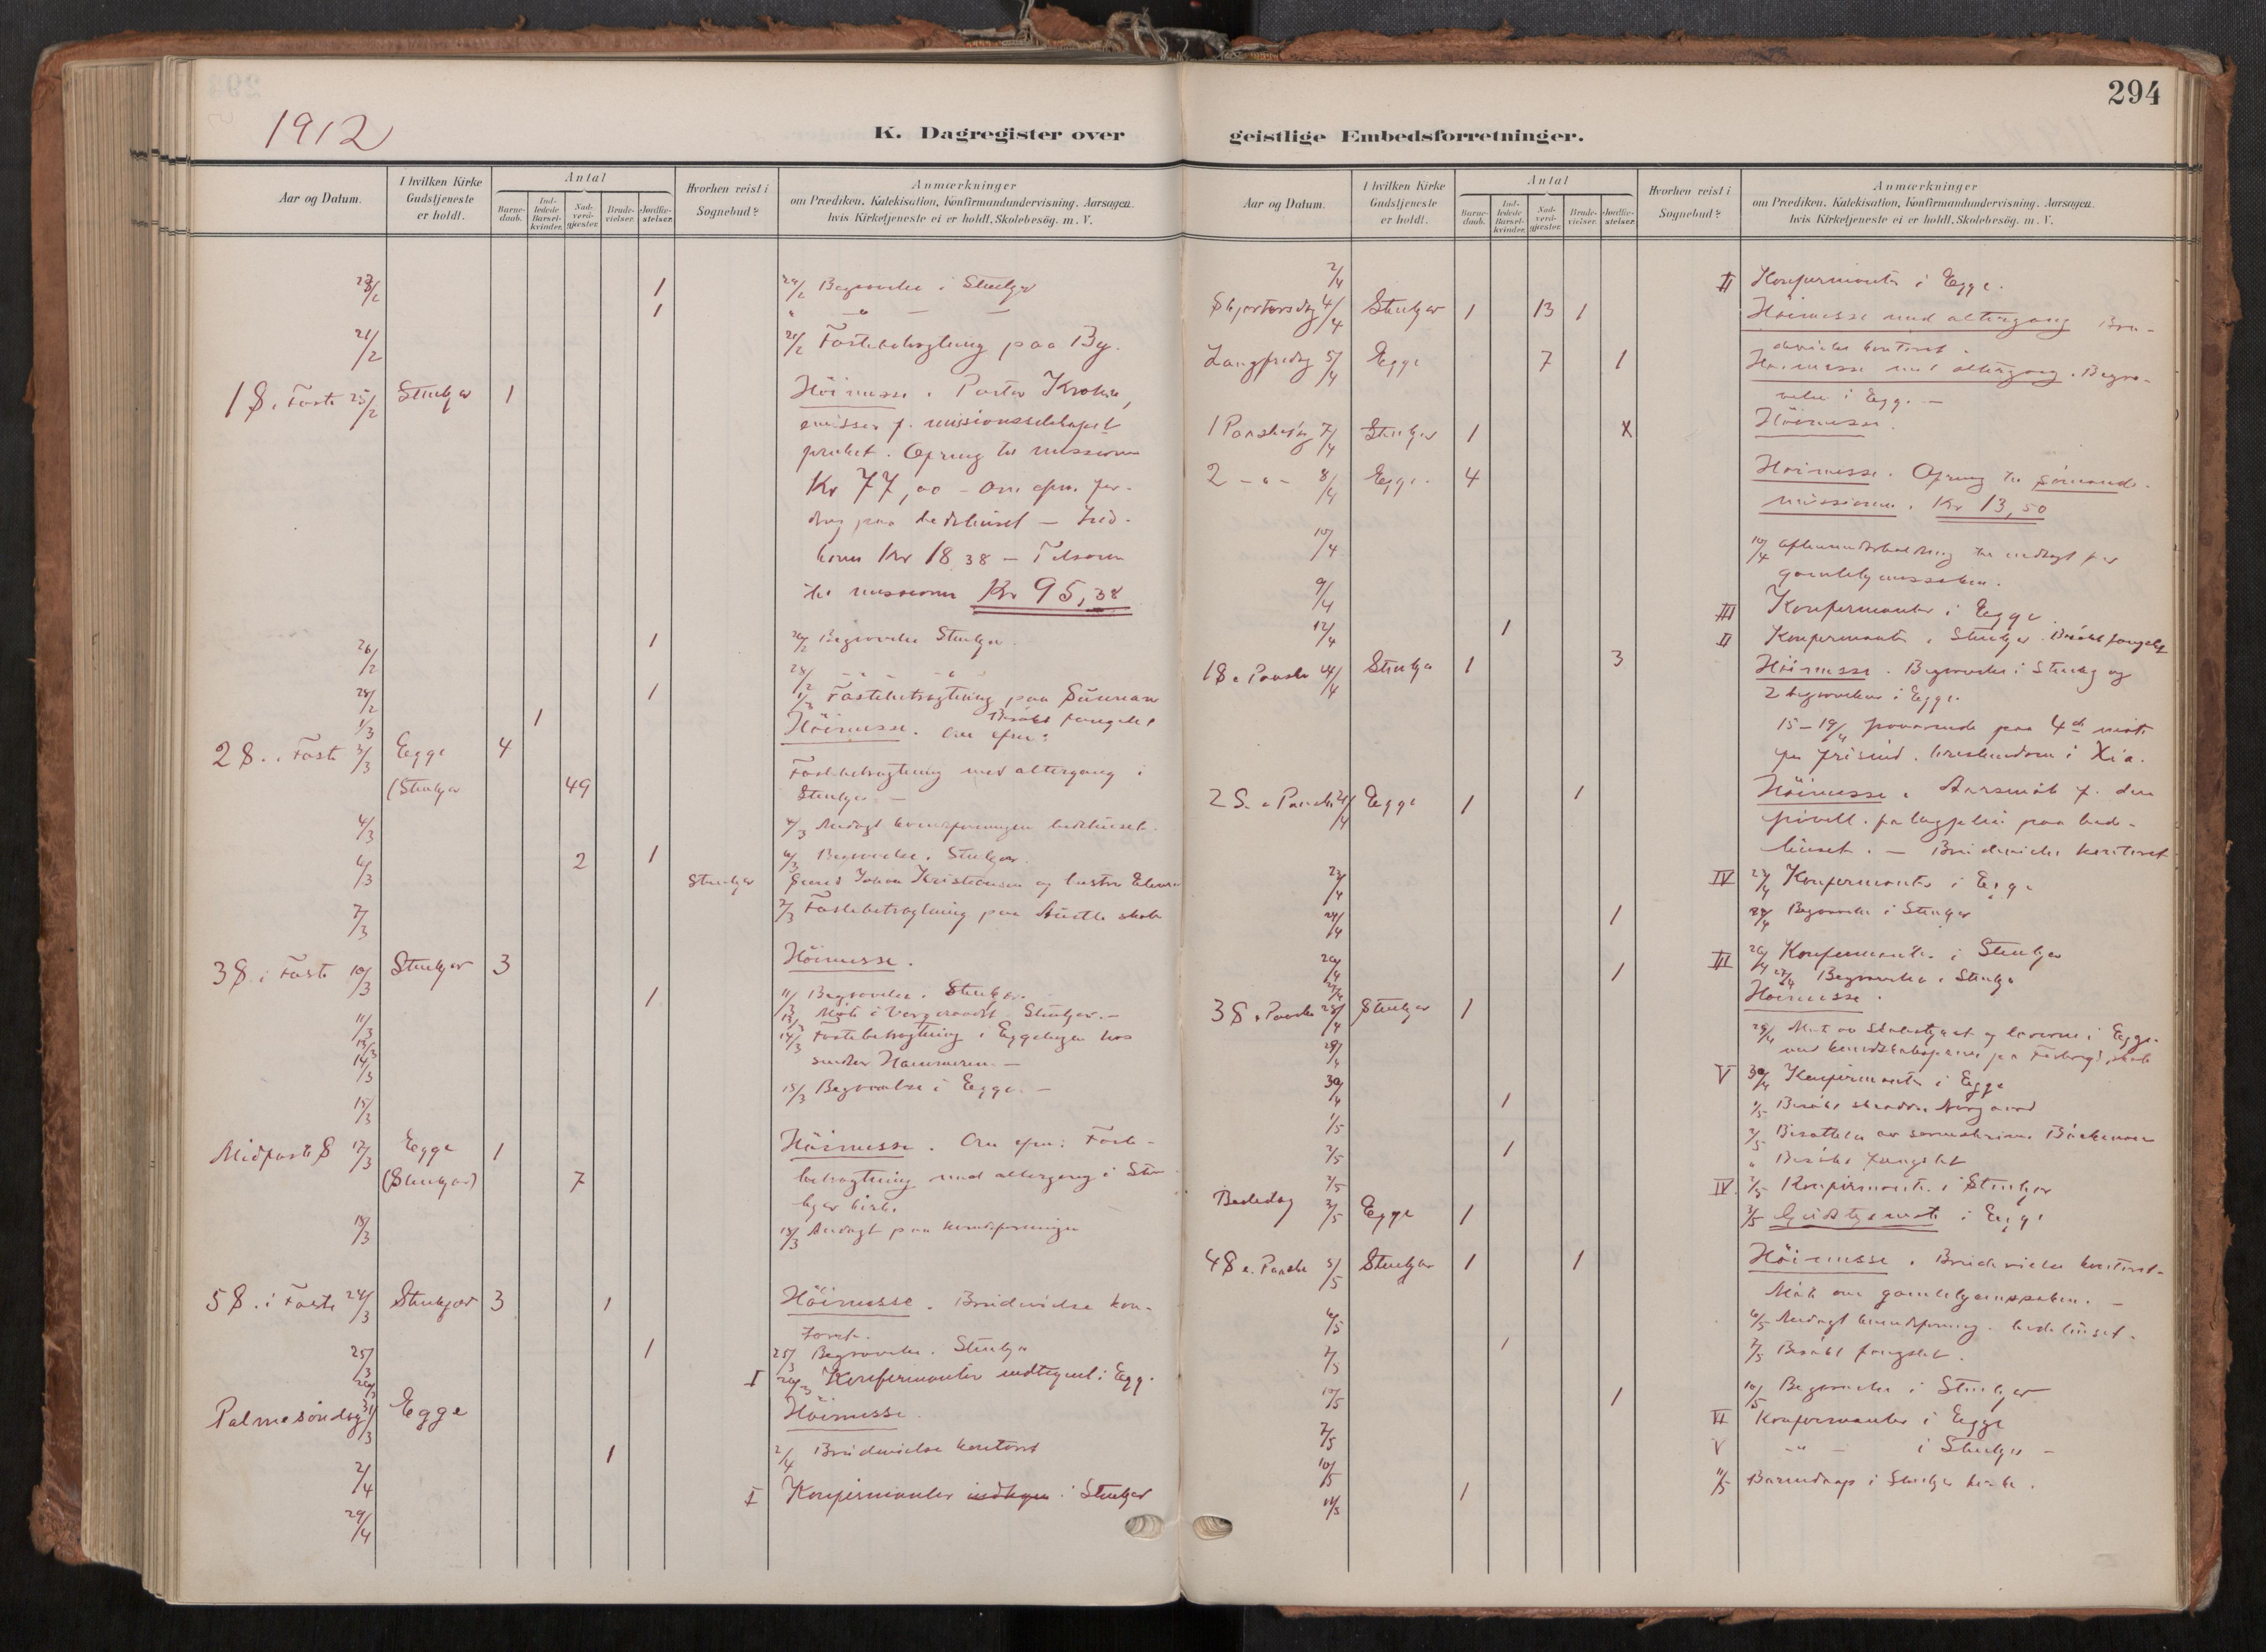 294
1912
K. Dagregister over geistlige Embedsforretninger.
Aar og Datum.
I hvilken Kirke Gudstjeneste er holdt.
Antal
Barnedaab.
Indledede Barselkvinder.
Nadverdgjæster.
Brudevielser.
Jordfæstelser.
Hvorhen reist i Sognebud?
Anmærkninger
om Prædiken, Katekisation, Konfirmandundervisning, Aarsagen,
hvis Kirketjeneste ei er holdt, Skolebesøg. m. V.
23/2 1 Begravelse i Stenkjær
" 1 " — —
21/2 21/2 Fastebetragtning paa By.
1 S. i Faste 25/2 Stenkjær 1 Höimesse. Pastor
f. missionsselskapet
præket. Ofring til missionen
Kr 77,00 – Om efm. fore-
drag paa bedehuset –
Kr 18,38 –
til missionen Kr 95,38
26/2 1 26/2 Begravelse Stenkjær.
28/2 1 28/2 " " "
1/3 1 1/3 Fastebetragtning paa Sunnan
Besökt fængslet
2 S. i Faste 3/3 Egge 4 Höimesse. Om efm:
(Stenkjær 49 Fastebetragtning med altergang i
Stenkjær –
4/3 4/3 Andagt kvindeforeningen bedehuset.
6/3 2 1 6/3 Begravelse. Stenkjær.
Stenkjær Johan Kristiansen og hustru
7/3 7/3 Fastebetragtning paa skole
3 S. i Faste 10/3 Stenkjær 3 Höimesse.
11/3 1 11/3 Begravelse. Stenkjær.
13/3 13/3 Möte i Vergeraadet Stenkjær. –
14/3 14/3 Fastebetragtning i Eggebogen hos
Hammeren. –
15/3 15/3 Begravelse i Egge. –
Midfaste S 17/3 Egge 1 Höimesse. Om efm: Faste-
(Stenkjær) 7 betragtning med altergang i Sten-
kjær kirke.
18/3 18/3 Andagt paa kvindeforeningen
5 S. i Faste 24/3 Stenkjær 3 1 Höimesse. Brudevielse kon-
toret.
25/3 1 25/3 Begravelse. Stenkjær
26/3 I 26/3 Konfirmanter indtegnet i Egge.
Palmesöndag 31/3 Egge Höimesse.
2/4 1 2/4 Brudevielse kontoret
29/4 I Konfirmanter i Stenkjær
Aar og Datum.
I hvilken Kirke Gudstjeneste er holdt.
Antal
Barnedaab.
Indledede Barselkvinder.
Nadverdgjæster.
Brudevielser.
Jordfæstelser.
Hvorhen reist i Sognebud?
Anmærkninger
om Prædiken, Katekisation, Konfirmandundervisning, Aarsagen,
hvis Kirketjeneste ei er holdt, Skolebesög. m. V.
2/4 II Konfirmanter i Egge.
Skjærtorsdag 4/4 Stenkjær 1 13 1 Höimesse med altergang Bru-
devielse kontoret.
Langfredag 5/4 Egge 7 1 Höimesse med altergang. Begra-
velse i Egge. –
1 Paaskedag 7/4 Stenkjær 1 X Höimesse.
2 – " – 8/4 Egge. 4 Höimesse. Ofring til sömands-
missionen. Kr 13,50
10/4 10/4 til indtægt for
gamlehjemssaken.
9/4 III Konfirmanter i Egge.
12/4 1 II Konfirmanter i Stenkjær. Besökt fængslet
1 S. e Paaske 14/4 Stenkjær 1 3 Höimesse. Begravelse i Stenkj og
2 begravelser i Egge.
15–19/4 paa 4de möte
for frisind. kristendom i Xia.
2 S. e Paaske 21/4 Egge 1 1 Höimesse. Aarsmöte f. den
paa bede-
huset. – Brudevielse kontoret
23/4 IV 23/4 Konfirmanter i Egge
24/4 1 24/4 Begravelse i Stenkjær
26/4 III 26/4 Konfirmanter i Stenkjær
27/4 1 27/4 Begravelse i Stenkjær
3 S. e Paaske 28/4 Stenkjær 1 Höimesse.
29/4 29/4 Möte av skolestyret og lærerne i Egge
30/4 V 30/4 Konfirmanter i Egge
1/5 1 1/5 Besökt
2/5 1 2/5
" Besökt fængslet
3/5 IV 3/5 Konfirmanter i Stenkjær
Bededag 3/5 Egge 1 3/5 i Egge
4 S e. Paaske 5/5 Stenkjær 1 1 Höimesse. Brudevielse kontoret.
Möte om gamlehjemssaken. –
6/5 6/5 Andagt kvindeforening. bedehuset.
7/5 1 7/5 Besökt fængslet.
10/5 1 10/5 Begravelse i Stenkjær
7/5 VI Konfirmanter i Egge
10/5 V – " – i Stenkjær –
11/5 1 11/5 Barnedaap i Stenkjær kirke.